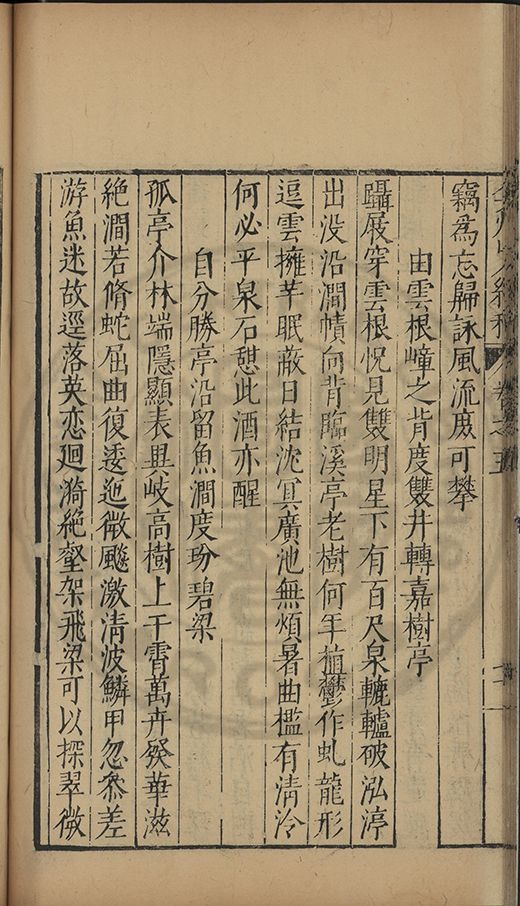 竊為忘歸詠風流庶可攀
由雲根嶂之背度雙井轉嘉樹亭
躡屐穿雲根怳見雙明星下有百尺泉轆轤破泓渟
出没沿澗幘向背臨溪亭老樹何年植鬱作虬龍形
逗雲擁芊眠蔽日結沈冥廣池無煩暑曲檻有清泠
何必平泉石憇此酒亦醒
自分勝亭沿留魚澗度玢碧梁
孤亭介林端隱顯表異岐高樹上干霄萬卉發華滋
絶澗若脩蛇屈曲復逶迤微飈激清波鱗甲忽叅差
游魚迷故逕落英恋廻漪絶壑架飛梁可以探翠微